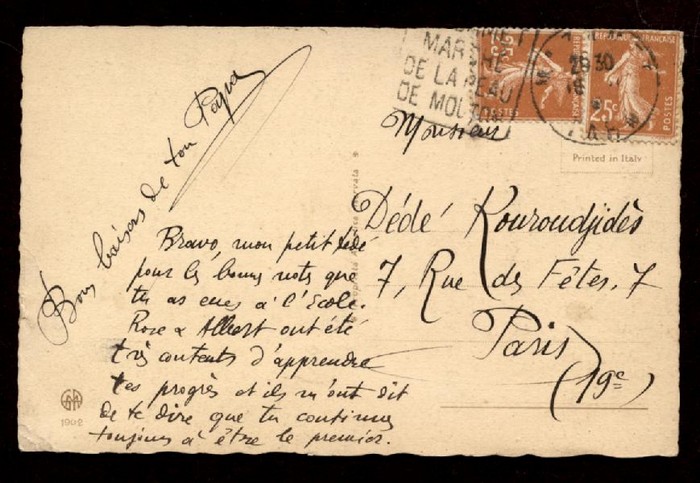 MAR
DE LA PEAU
DE MOUTON
RÉPUBLIQUE FRANÇAISE
25c
POSTES
Printed in Italy
Monsieur
Dédé Kouroudjidès
7, Rue des Fêtes, 7
Paris
(19e)
Bons baisers de ton Papa
Bravo, mon petit Dédé
pour les bonnes nots que
tu as eues à l'École.
Rose & Albert ont été
très contents d'apprendre
tes progrès et ils m'ont dit
de te dire que tu continues
toujours à être le premier.
1902